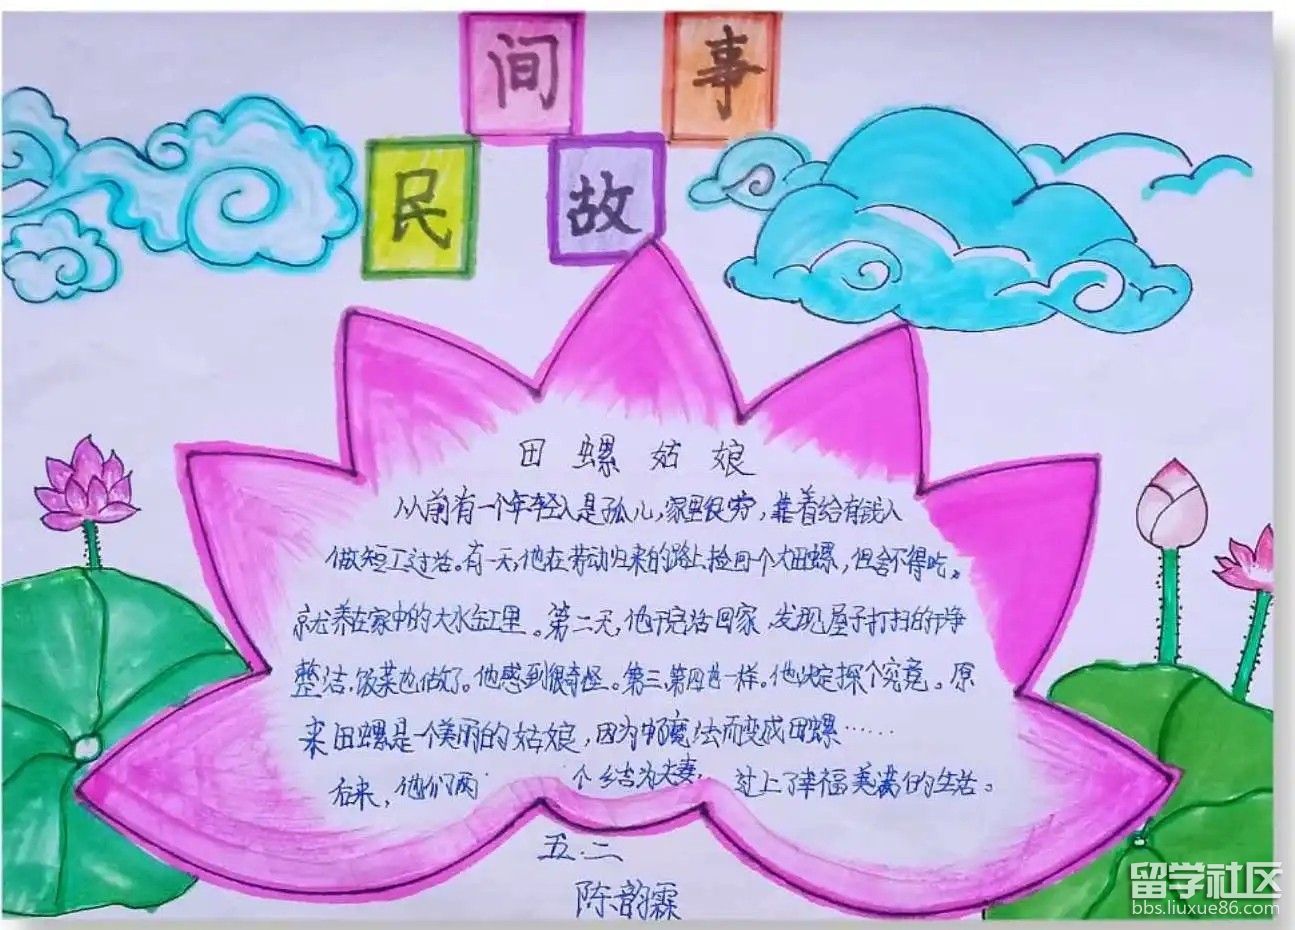 民间故事
田螺姑娘
从前有一个年轻人是孤儿,家里很穷,靠着给有钱人
做短工过活。有一天,他在劳动归来的路上捡回一个大田螺,但舍不得吃。
就养在家中的大水缸里。第二天,他干完活回家,发现屋子打扫的干净
整洁,饭菜也做好了。他感到很奇怪。第三,第四也一样。他决定探个究竟。原
来田螺是一个美丽的姑娘,因为中魔法而变成田螺……
后来,他们两个结为夫妻,过上了幸福美满的生活。
五.二
陈韵霖
留学社区
bbs.liuxue86.com